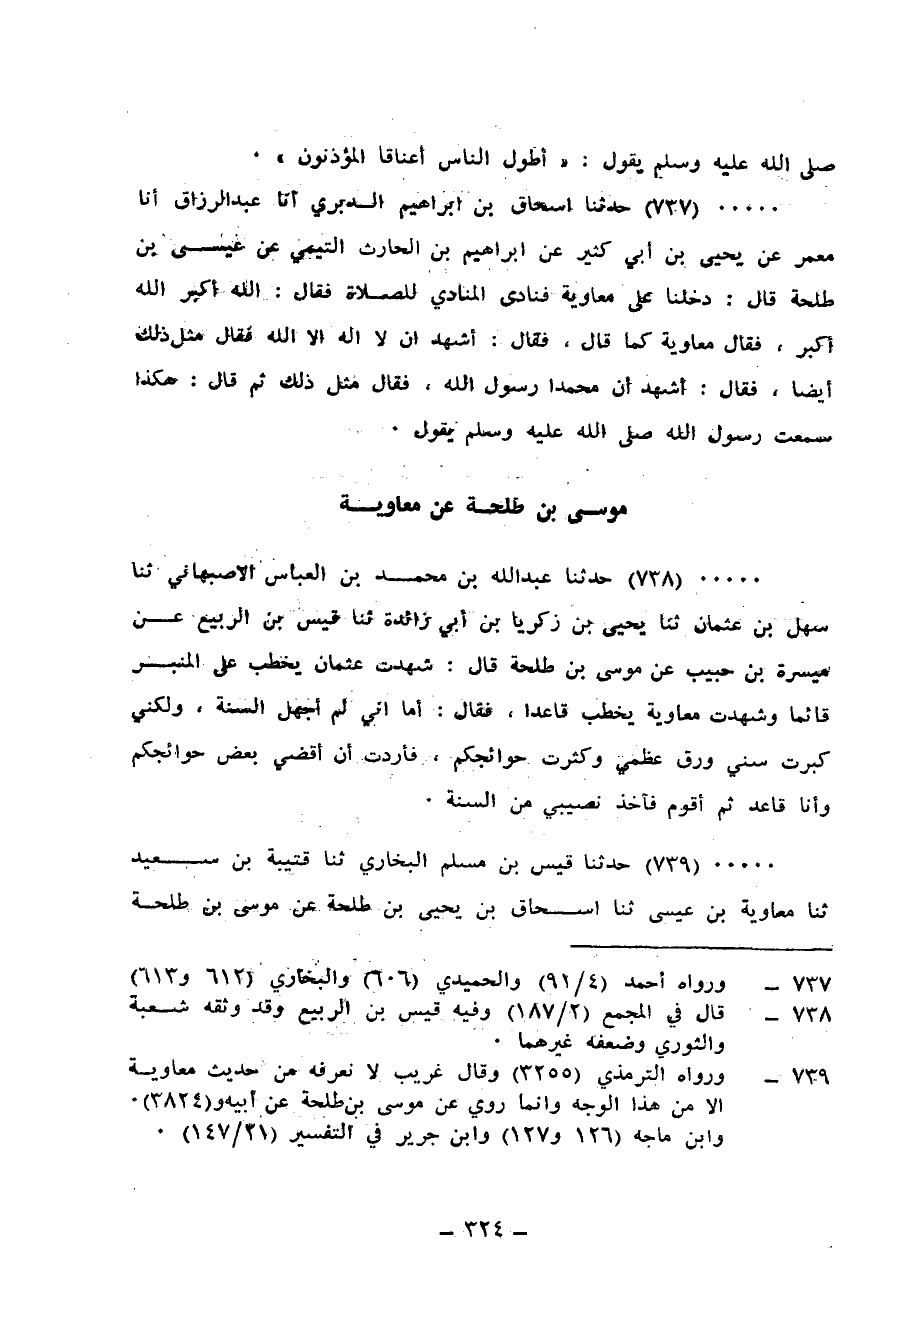 صلى الله عليه وسلم يقول : « أطول الناس أعناقا المؤذنون » ٠
٠٠٠٠٠ (٧٣٧) حدثنا اسحاق بن ابراهيم الـدبري أنا عبدالرزاق أنا
معمر عن يحيى بن أبي كثير عن ابراهيم بن الحارث التيمي عن عيســى بن
طلحة قال : دخلنا على معاوية فنادى المنادي للصـلاة فقال : الله أكبر الله
أكبر ، فقال معاوية كما قال ، فقال : أشهد ان لا اله الا الله فقال مثل ذلك
أيضا ، فقال : أشهد أن محمدا رسول الله ، فقال مثل ذلك ثم قال : هكذا
سمعت رسول الله صلى الله عليه وسلم يقول ٠
موسى بن طلحـة عن معاويــة
٠٠٠٠٠ (٧٣٨) حدثنا عبدالله بن محمــد بن العباس الاصبهاني ثنا
سهل بن عثمان ثنا يحيى بن زكريا بن أبي زائدة ثنا قيس بن الربيع عــن
ميسرة بن حبيب عن موسى بن طلحة قال : شهدت عثمان يخطب على المنبــر
قائما وشهدت معاوية يخطب قاعدا ، فقال : أما اني لم أجهل السنة ، ولكني
كبرت سني ورق عظمي وكثرت حوائجكم ، فأردت أن أقضي بعض حوائجكم
وأنا قاعد ثم أقوم فآخذ نصيبي من السنة ٠
٠٠٠٠٠ (٧٣٩) حدثنا قيس بن مسلم البخاري ثنا قتيبة بن ســـعيد
ثنا معاوية بن عيسى ثنا اســـحاق بن يحيى بن طلحة عن موسى بن طلحــة
٧٣٧ ـ ورواه أحمد (٩١/٤) والحميدي (٦٠٦) والبخاري (٦١٢ و٦١٣)
٧٣٨ ـ قال في المجمع (١٨٧/٢) وفيه قيس بن الربيع وقد وثقه شــعبة
والثوري وضعفه غيرهما ٠
٧٣٩ ـ ورواه الترمذي (٣٢٥٥) وقال غريب لا نعرفه من حديث معاويــة
الا من هذا الوجه وانما روي عن موسى بن طلحة عن أبيه و(٣٨٢٤)٠
وابن ماجه (١٢٦ و١٢٧) وابن جرير في التفسير (١٤٧/٢١) ٠
ـ ٣٢٤ ـ